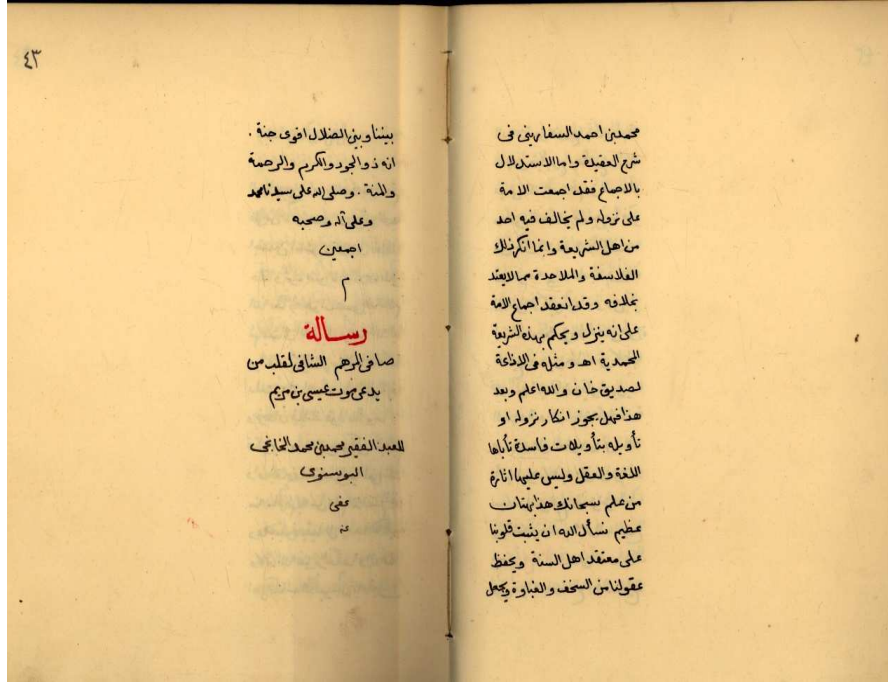 محمد بن احمد السفاريني في
شرح العقيدة واما الاستدلال
بالاجماع فقد اجمعت الامة
على نزوله ولم يخالف فيه احد
من اهل الشريعة وانما انكر ذلك
الفلاسفة والملاحدة مما لا يعتد
بخلافه وقد انعقد اجماع الامة
على انه ينزل ويحكم بهذه الشريعة
المحمدية اهـ ومثله في الاذاعة
لصديق خان والله اعلم وبعد
هذا فهل يجوز انكار نزوله او
تأويله بتأويلات فاسدة تأباها
اللغة والعقل وليس عليها اثارة
من علم سبحانك هذا بهتان
عظيم نسأل الله ان يثبت قلوبنا
على معتقد اهل السنة ويحفظ
عقولنا من السخف والغباوة ويجعل
٤٣
بيننا وبين الضلال اقوى جنة .
انه ذو الجود والكرم والرحمة
والمنة . وصلى الله على سيدنا محمد
وعلى آله وصحبه
اجمعين
م
رسالة
صافي المرهم الشافي لقلب من
يدعي موت عيسى بن مريم
للعبد الفقير محمد بن محمد الخانجي
البوسنوي
عفي
عنه